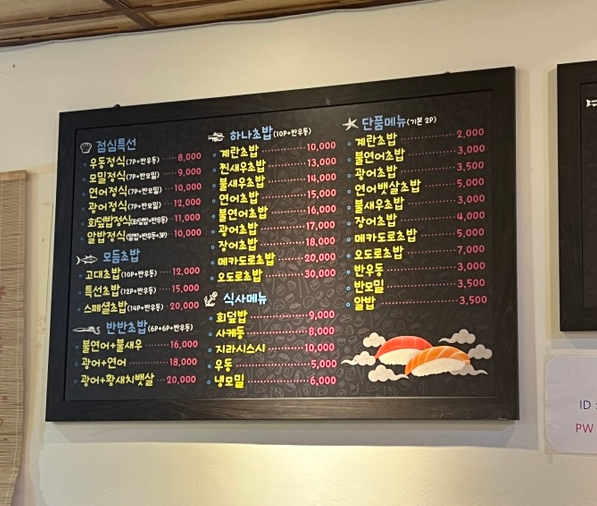 점심특선
우동정식(7P+반우동) 8,000
모밀정식(7P+반모밀) 9,000
연어정식(7P+반모밀) 10,000
광어정식(7P+반모밀) 12,000
회덮밥정식(회덮밥+반우동) 11,000
알밥정식(알밥+반우동+3P) 10,000
모듬초밥
고대초밥(10P+반우동) 12,000
특선초밥(12P+반우동) 15,000
스페셜초밥(14P+반우동) 20,000
반반초밥(6P+6P+반우동)
불연어+불새우 16,000
광어+연어 18,000
광어+황새치뱃살 20,000
하나초밥(10P+반우동)
계란초밥 10,000
찐새우초밥 13,000
불새우초밥 14,000
연어초밥 15,000
불연어초밥 16,000
광어초밥 17,000
장어초밥 18,000
메카도로초밥 20,000
오도로초밥 30,000
식사메뉴
회덮밥 9,000
사케동 8,000
지라시스시 10,000
우동 5,000
냉모밀 6,000
단품메뉴(기본 2P)
계란초밥 2,000
불연어초밥 3,000
광어초밥 3,500
연어뱃살초밥 5,000
불새우초밥 3,000
장어초밥 4,000
메카도로초밥 5,000
오도로초밥 7,000
반우동 3,000
반모밀 3,500
알밥 3,500
ID :
PW